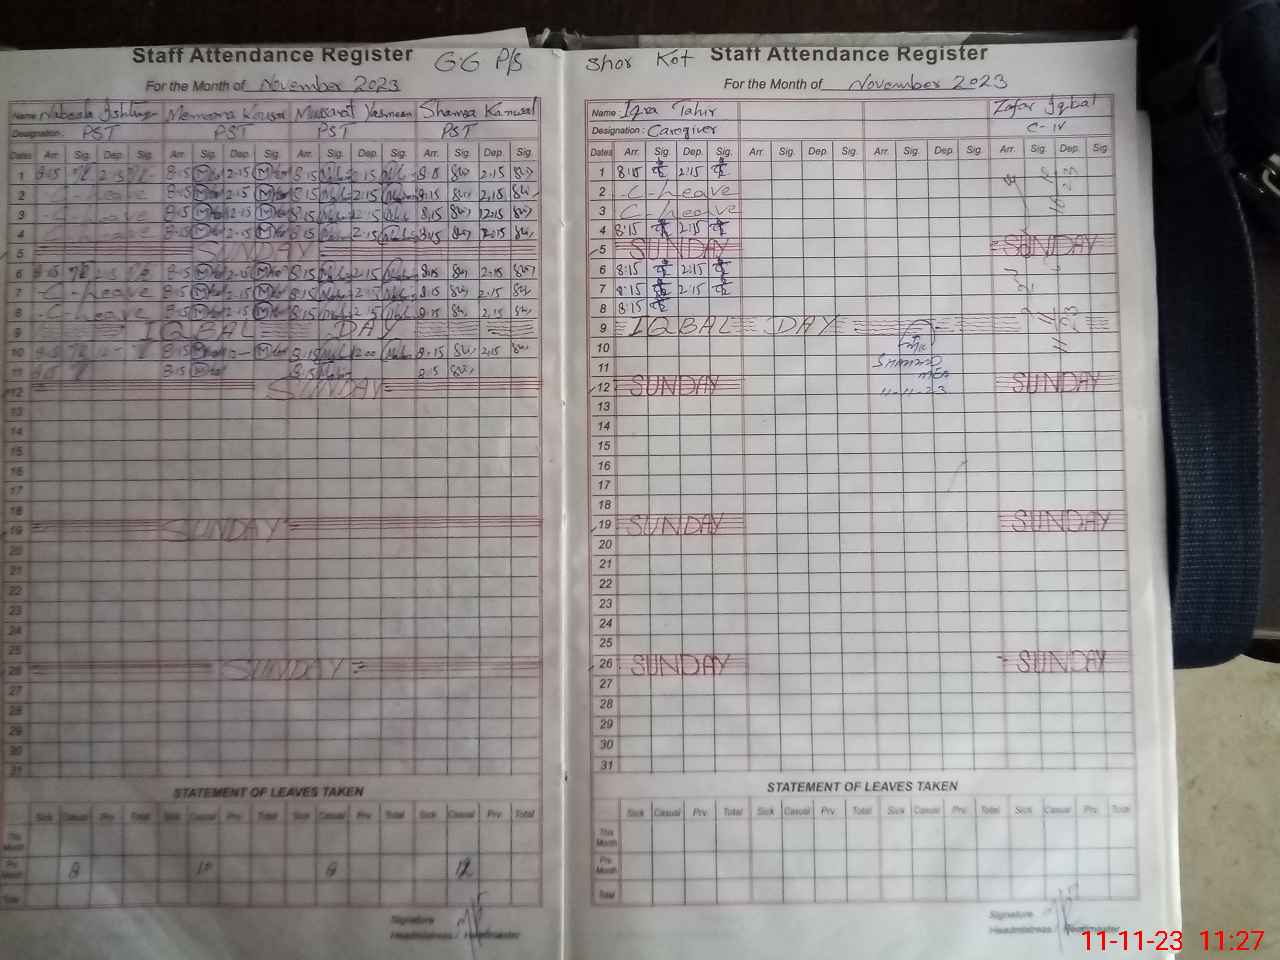 Staff Attendance Register GG P/S
For the Month of November 2023
Name Nabeela Ishtiaq Memoona Kousar Mussarat Yasmeen Shamsa Kanwal
Designation : PST PST PST PST
Dates Arr. Sig. Dep. Sig. Arr. Sig. Dep. Sig. Arr. Sig. Dep. Sig. Arr. Sig. Dep. Sig.
1 8:15 2:15 8:15 2:15 8:15 2:15 8:15 2:15
2 C-Leave 8:15 2:15 8:15 2:15 8:15 2:15
3 C-Leave 8:15 2:15 8:15 2:15 8:15 2:15
4 C-Leave 8:15 2:15 8:15 2:15 8:15 2:15
5 SUNDAY
6 8:15 2:15 8:15 2:15 8:15 2:15 8:15 2:15
7 C-Leave 8:15 2:15 8:15 2:15 8:15 2:15
8 C-Leave 8:15 2:15 8:15 2:15 8:15 2:15
9 IQBAL DAY
10 8:15 12- 8:15 12- 8:15 12:00 8:15 2:15
11 8:15 8:15 8:15 8:15
12 SUNDAY
13
14
15
16
17
18
19 SUNDAY
20
21
22
23
24
25
26 SUNDAY
27
28
29
30
31
STATEMENT OF LEAVES TAKEN
Sick Casual Prv. Total Sick Casual Prv. Total Sick Casual Prv. Total Sick Casual Prv. Total
This Month
Pre. Month 8 10 8 12
Total
Signature
Headmistress / Headmaster
Shor Kot Staff Attendance Register
For the Month of November 2023
Name : Iqra Tahir Zafar Iqbal
Designation : Caregiver C-IV
Dates Arr. Sig. Dep. Sig. Arr. Sig. Dep Sig. Arr. Sig. Dep. Sig. Arr. Sig. Dep. Sig.
1 8:15 2:15
2 C-Leave
3 C-Leave
4 8:15 2:15
5 SUNDAY SUNDAY
6 8:15 2:15
7 8:15 2:15
8 8:15
9 IQBAL DAY
10
11 MEA
12 SUNDAY 11-11-23 SUNDAY
13
14
15
16
17
18
19 SUNDAY SUNDAY
20
21
22
23
24
25
26 SUNDAY SUNDAY
27
28
29
30
31
STATEMENT OF LEAVES TAKEN
Sick Casual Prv. Total Sick Casual Prv. Total Sick Casual Prv. Total Sick Casual Prv. Total
This Month
Pre. Month
Total
Signature
Headmistress / Headmaster
11-11-23 11:27